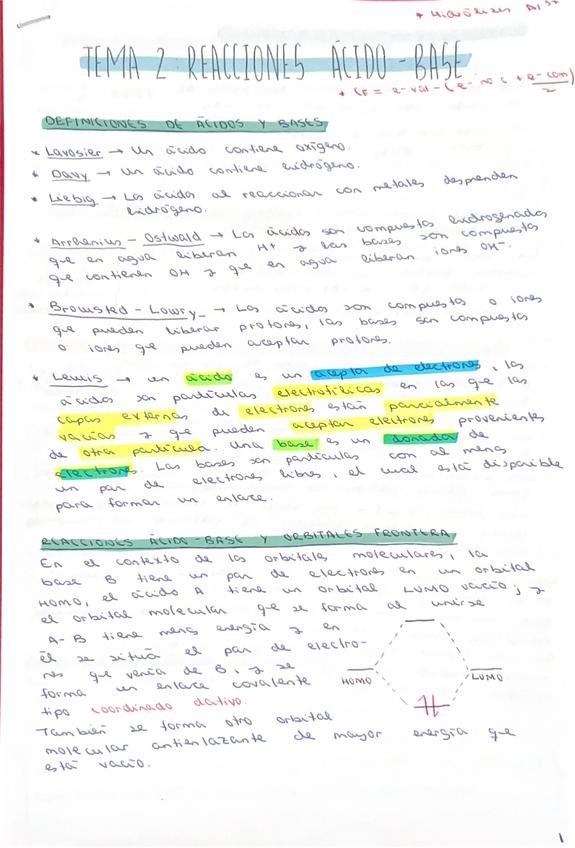 * Hidrólisis Al³⁺
TEMA 2: REACCIONES ÁCIDO-BASE
* CF = e⁻ val - (e⁻ no c + e⁻ com/2)
DEFINICIONES DE ÁCIDOS Y BASES
* Lavosier → Un ácido contiene oxígeno.
* Davy → Un ácido contiene hidrógeno.
* Liebig → Los ácidos al reaccionar con metales desprenden
hidrógeno.
* Arrhenius - Ostwald → Los ácidos son compuestos hidrogenados
que en agua liberan H⁺ y las bases son compuestos
que contienen OH y que en agua liberan iones OH⁻.
* Bronsted - Lowry → Los ácidos son compuestos o iones
que pueden liberar protones, las bases son compuestos
o iones que pueden aceptar protones.
* Lewis → un ácido es un aceptor de electrones, los
ácidos son partículas electrofílicas en las que las
capas externas de electrones están parcialmente
vacías y que pueden aceptar electrones provenientes
de otra partícula. Una base es un donador de
electrones. Las bases son partículas con al menos
un par de electrones libres, el cual está disponible
para formar un enlace.
REACCIONES ÁCIDO-BASE Y ORBITALES FRONTERA
En el contexto de los orbitales moleculares, la
base B tiene un par de electrones en un orbital
HOMO, el ácido A tiene un orbital LUMO vacío; y
el orbital molecular que se forma al unirse
A-B tiene menos energía y en
él se situá el par de electro-
nes que venía de B, y se
forma un enlace covalente
tipo coordinado dativo.
HOMO
LUMO
También se forma otro orbital
molecular antienlazante de mayor energía que
está vacío.
1